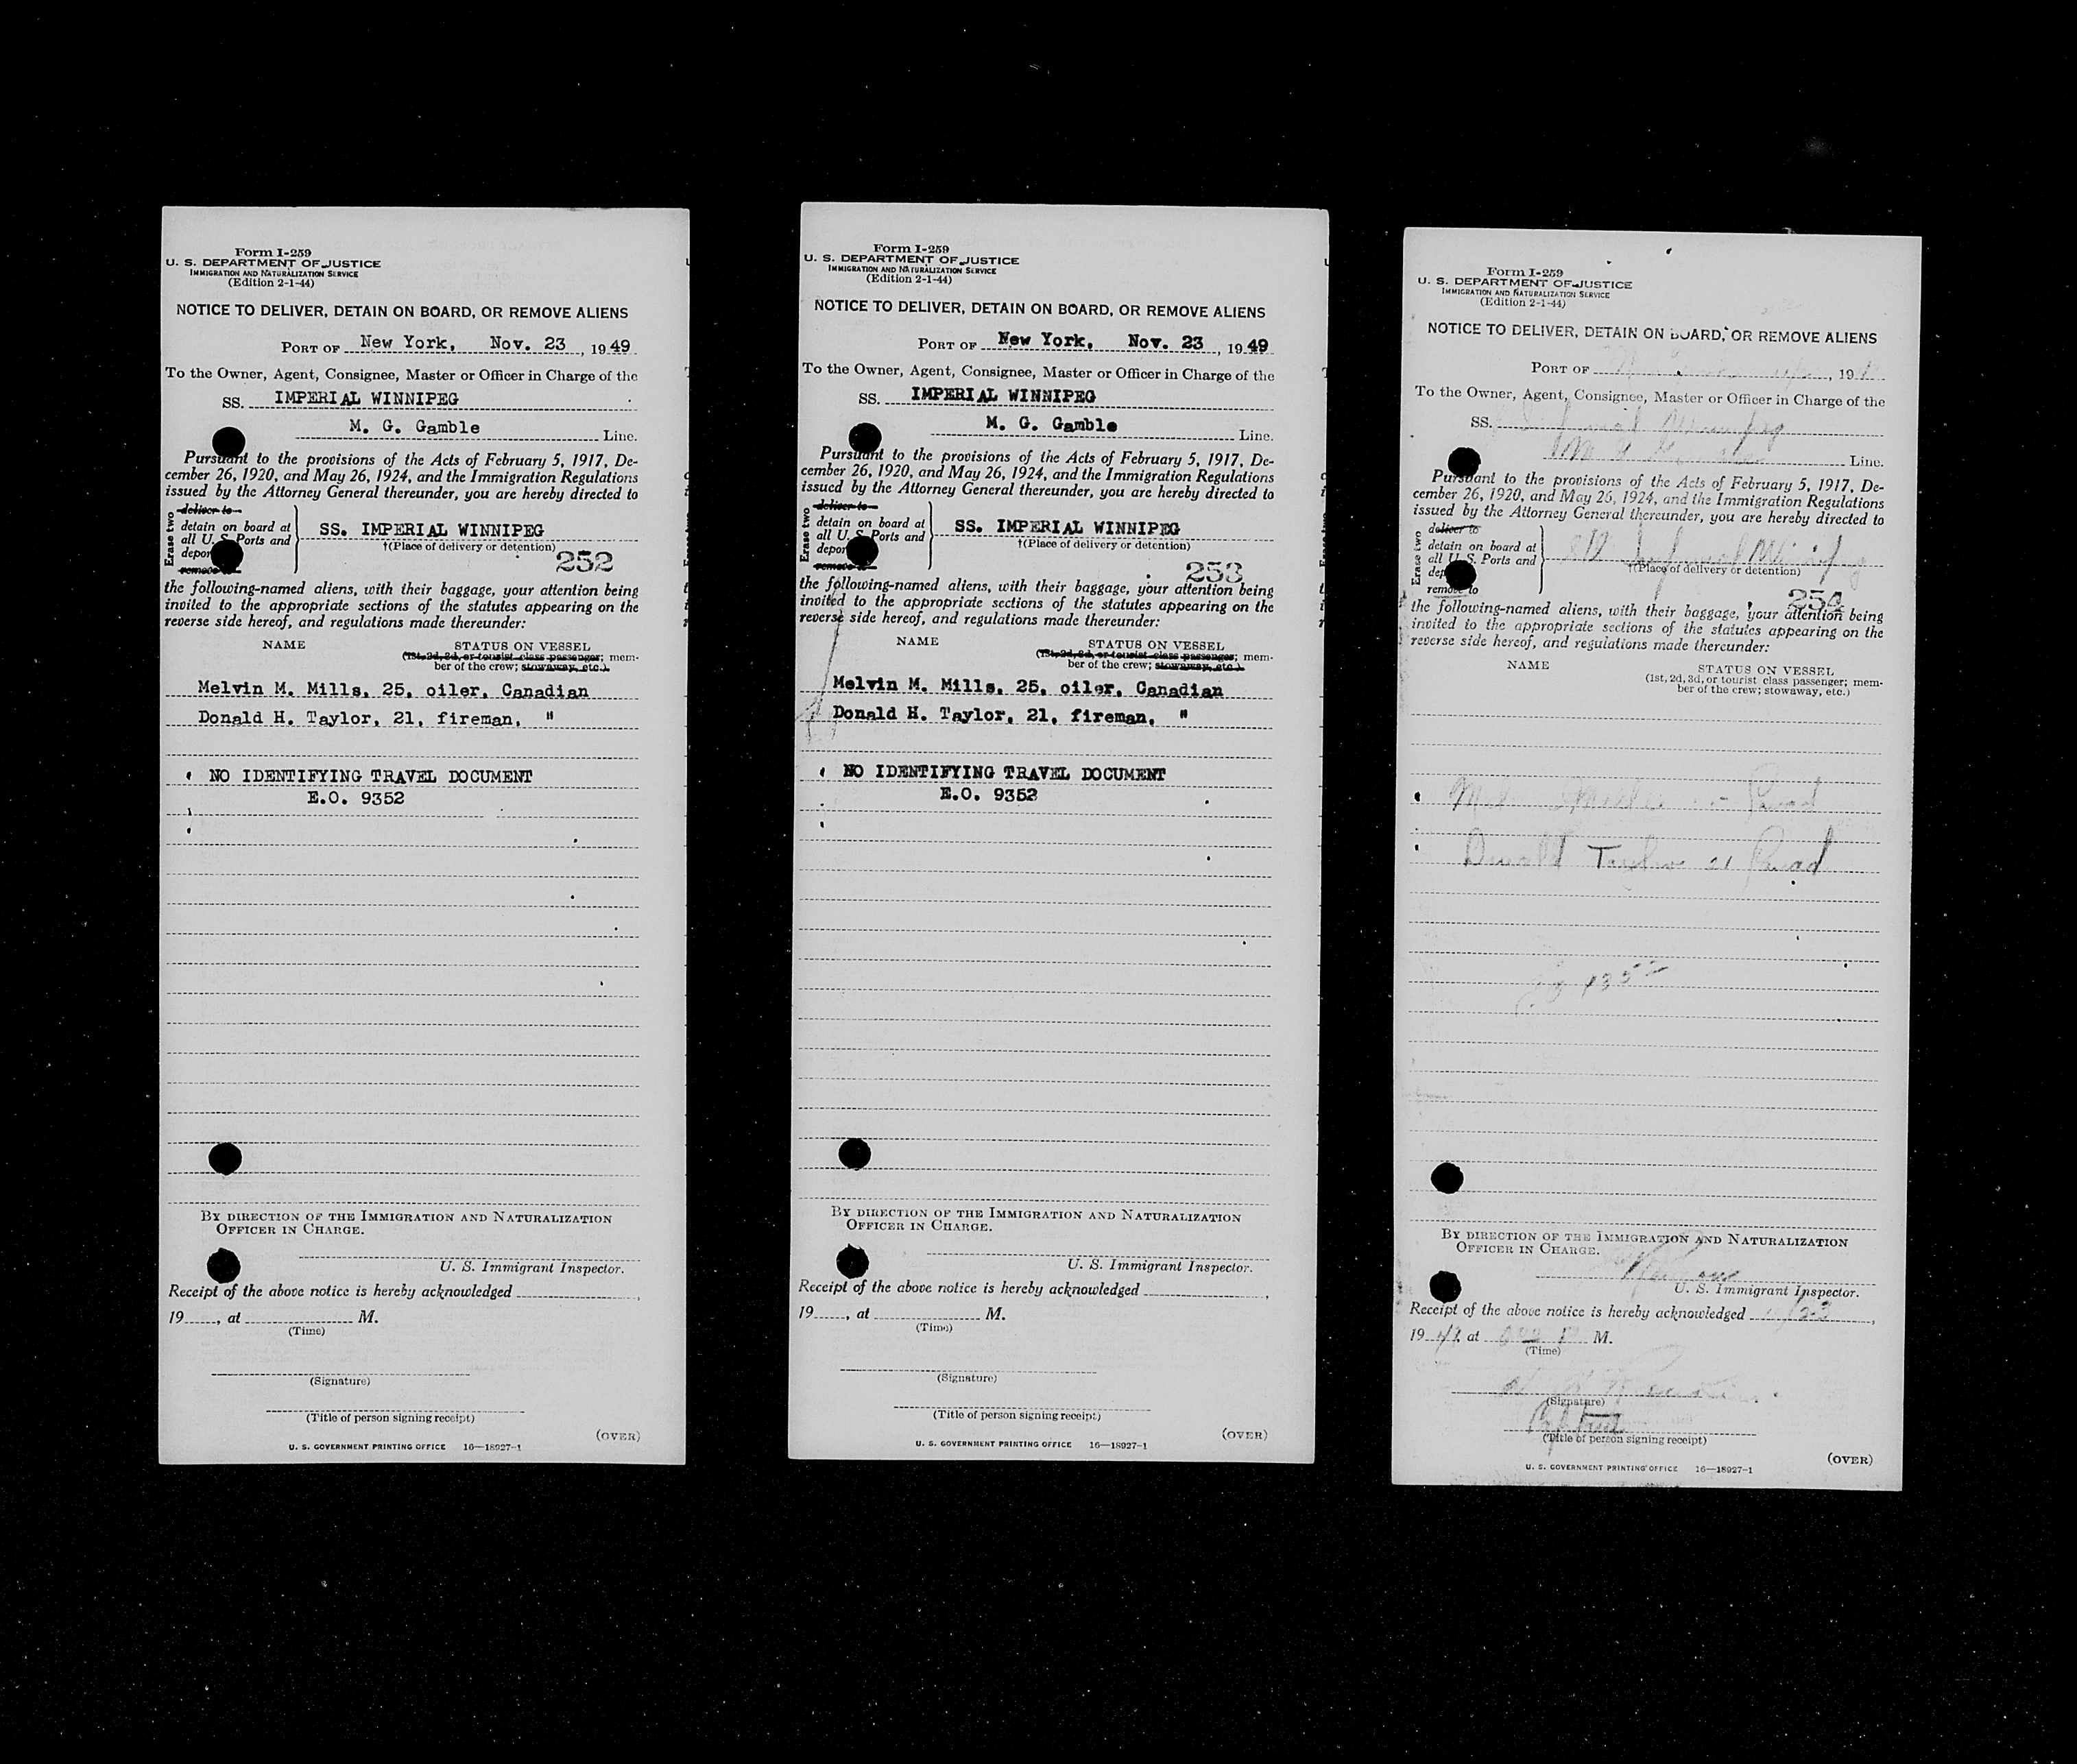 Form I-259
U. S. DEPARTMENT OF JUSTICE
IMMIGRATION AND NATURALIZATION SERVICE
(Edition 2-1-44)
NOTICE TO DELIVER, DETAIN ON BOARD, OR REMOVE ALIENS
PORT OF New York, Nov. 23, 1949
To the Owner, Agent, Consignee, Master or Officer in Charge of the
SS. IMPERIAL WINNIPEG
M. G. Gamble Line.
Pursuant to the provisions of the Acts of February 5, 1917, De-
cember 26, 1920, and May 26, 1924, and the Immigration Regulations
issued by the Attorney General thereunder, you are hereby directed to
Erase two
deliver to
detain on board at
all U. S. Ports and
depor
remove to
SS. IMPERIAL WINNIPEG
†(Place of delivery or detention)
252
the following-named aliens, with their baggage, your attention being
invited to the appropriate sections of the statutes appearing on the
reverse side hereof, and regulations made thereunder:
NAME STATUS ON VESSEL
(1st, 2d, 3d, or tourist class passenger; mem-
ber of the crew; stowaway, etc.)
Melvin M. Mills, 25, oiler, Canadian
Donald H. Taylor, 21, fireman, "
NO IDENTIFYING TRAVEL DOCUMENT
E.O. 9352
BY DIRECTION OF THE IMMIGRATION AND NATURALIZATION
OFFICER IN CHARGE.
U. S. Immigrant Inspector.
Receipt of the above notice is hereby acknowledged
19 , at M.
(Time)
(Signature)
(Title of person signing receipt)
(OVER)
U. S. GOVERNMENT PRINTING OFFICE 16—18927-1
Form I-259
U. S. DEPARTMENT OF JUSTICE
IMMIGRATION AND NATURALIZATION SERVICE
(Edition 2-1-44)
NOTICE TO DELIVER, DETAIN ON BOARD, OR REMOVE ALIENS
PORT OF New York, Nov. 23, 1949
To the Owner, Agent, Consignee, Master or Officer in Charge of the
SS. IMPERIAL WINNIPEG
M. G. Gamble Line.
Pursuant to the provisions of the Acts of February 5, 1917, De-
cember 26, 1920, and May 26, 1924, and the Immigration Regulations
issued by the Attorney General thereunder, you are hereby directed to
Erase two
deliver to
detain on board at
all U. S. Ports and
depor
remove to
SS. IMPERIAL WINNIPEG
†(Place of delivery or detention)
253
the following-named aliens, with their baggage, your attention being
invited to the appropriate sections of the statutes appearing on the
reverse side hereof, and regulations made thereunder:
NAME STATUS ON VESSEL
(1st, 2d, 3d, or tourist class passenger; mem-
ber of the crew; stowaway, etc.)
Melvin M. Mills, 25, oiler, Canadian
Donald H. Taylor, 21, fireman, "
NO IDENTIFYING TRAVEL DOCUMENT
E.O. 9352
BY DIRECTION OF THE IMMIGRATION AND NATURALIZATION
OFFICER IN CHARGE.
U. S. Immigrant Inspector.
Receipt of the above notice is hereby acknowledged
19 , at M.
(Time)
(Signature)
(Title of person signing receipt)
(OVER)
U. S. GOVERNMENT PRINTING OFFICE 16—18927-1
Form I-259
U. S. DEPARTMENT OF JUSTICE
IMMIGRATION AND NATURALIZATION SERVICE
(Edition 2-1-44)
NOTICE TO DELIVER, DETAIN ON BOARD, OR REMOVE ALIENS
PORT OF , 19
To the Owner, Agent, Consignee, Master or Officer in Charge of the
SS. Winnipeg
Line.
Pursuant to the provisions of the Acts of February 5, 1917, De-
cember 26, 1920, and May 26, 1924, and the Immigration Regulations
issued by the Attorney General thereunder, you are hereby directed to
Erase two
deliver to
detain on board at
all U. S. Ports and
dep
remove to
†(Place of delivery or detention)
254
the following-named aliens, with their baggage, your attention being
invited to the appropriate sections of the statutes appearing on the
reverse side hereof, and regulations made thereunder:
NAME STATUS ON VESSEL
(1st, 2d, 3d, or tourist class passenger; mem-
ber of the crew; stowaway, etc.)
Donald Taylor 21
BY DIRECTION OF THE IMMIGRATION AND NATURALIZATION
OFFICER IN CHARGE.
U. S. Immigrant Inspector.
Receipt of the above notice is hereby acknowledged /23,
19 , at M.
(Time)
(Signature)
Captain
(Title of person signing receipt)
(OVER)
U. S. GOVERNMENT PRINTING OFFICE 16—18927-1